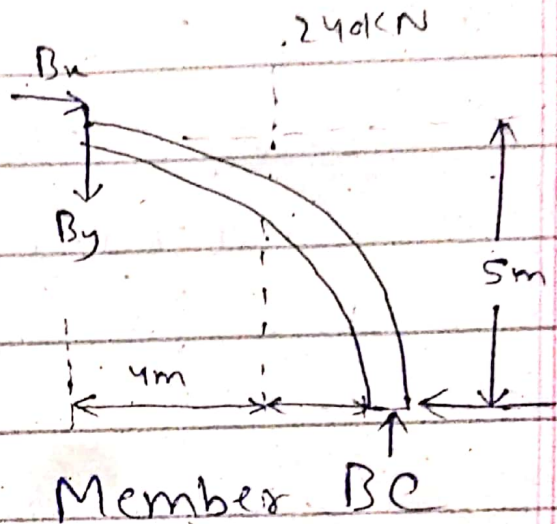 240kN
Bx
By
5m
4m
Member BC